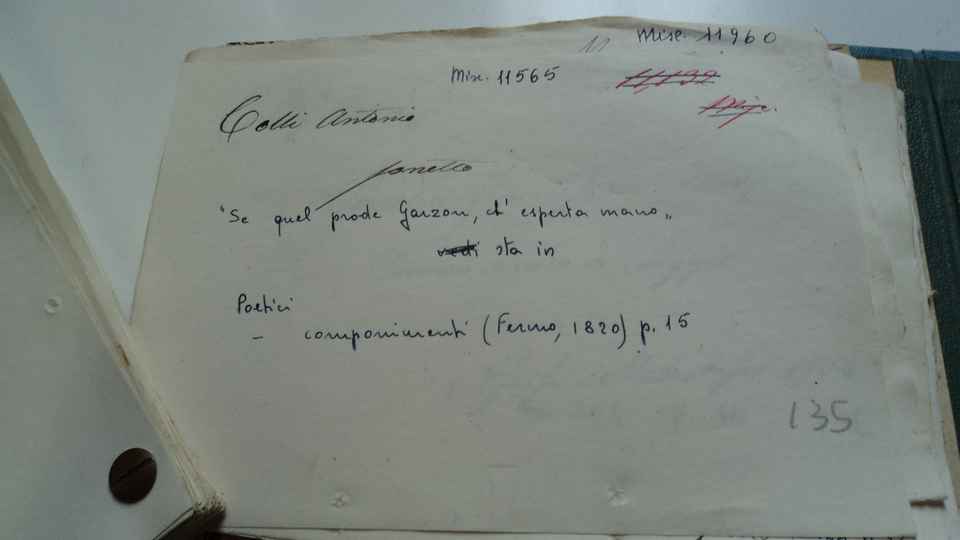 Misc. 11960
Misc. 11565
Misc.
Colli Antonio
sonetto
"Se quel prode Garzon, ch' esperta mano„
vedi sta in
Poetici
- componimenti (Fermo, 1820) p. 15
135